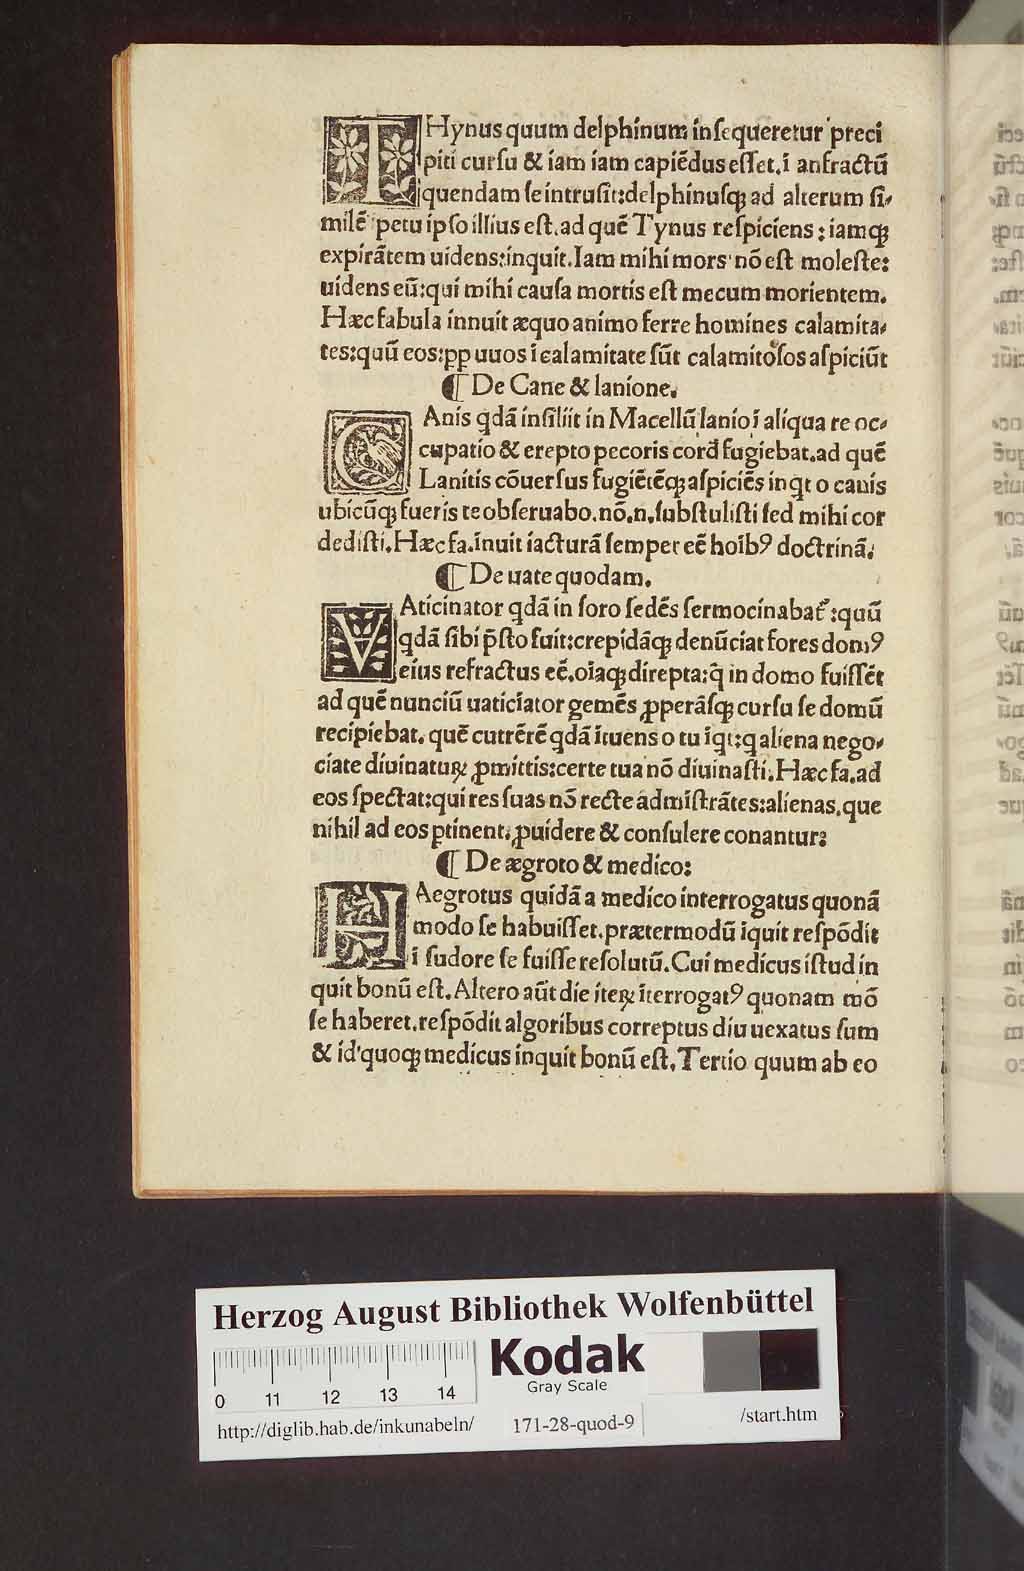 THynus quum delphinum insequeretur preci
piti cursu & iam iam capiēdus esset. ī anfractū
quendam se intrusit: delphinusqꝫ ad alterum si-
milē petu ipso illius est. ad quē Tynus respiciens: iamqꝫ
expirātem uidens: inquit. Iam mihi mors nō est moleste:
uidens eū: qui mihi causa mortis est mecum morientem.
Hæc fabula innuit æquo animo ferre homines calamita-
tes: quū eos: ꝓp uuos i calamitate sūt calamitosos aspiciūt
¶ De Cane & lanione.
CAnis qdā insiliit in Macellū lanioī aliqua re oc-
cupatio & erepto pecoris cord fugiebat. ad quē
Lanitis cōuersus fugiētēqꝫ aspiciēs inqt o canis
ubicūqꝫ fueris te obseruabo. nō. n. substulisti sed mihi cor
dedisti. Hæc fa. īnuit iacturā semper eē hoībꝰ doctrinā.
¶ De uate quodam.
VAticinator qdā in foro sedēs sermocinabat: quū
qdā sibi p̄sto fuit: crepidāqꝫ denūciat fores domꝰ
eius refractus eē. oīaqꝫ direpta: q̄ in domo fuissēt
ad quē nunciū uaticīator gemēs ꝓperāsqꝫ cursu se domū
recipiebat. quē cutrērē qdā ītuens o tu īqt: q aliena nego-
ciate diuinatuꝝ ꝓmittis: certe tua nō diuinasti. Hæc fa. ad
eos spectat: qui res suas nō recte admīstrātes: alienas. que
nihil ad eos ꝑtinent. ꝓuidere & consulere conantur:
¶ De ægroto & medico:
HAegrotus quidā a medico interrogatus quonā
modo se habuisset. prætermodū īquit respōdit
ī sudore se fuisse resolutū. Cui medicus istud in
quit bonū est. Altero aūt die iteꝝ īterrogatꝰ quonam mō
se haberet. respōdit algoribus correptus diu uexatus sum
& id quoqꝫ medicus inquit bonū est. Tertio quum ab eo
Herzog August Bibliothek Wolfenbüttel
Kodak
Gray Scale
0 11 12 13 14
http://diglib.hab.de/inkunabeln/ 171-28-quod-9 /start.htm